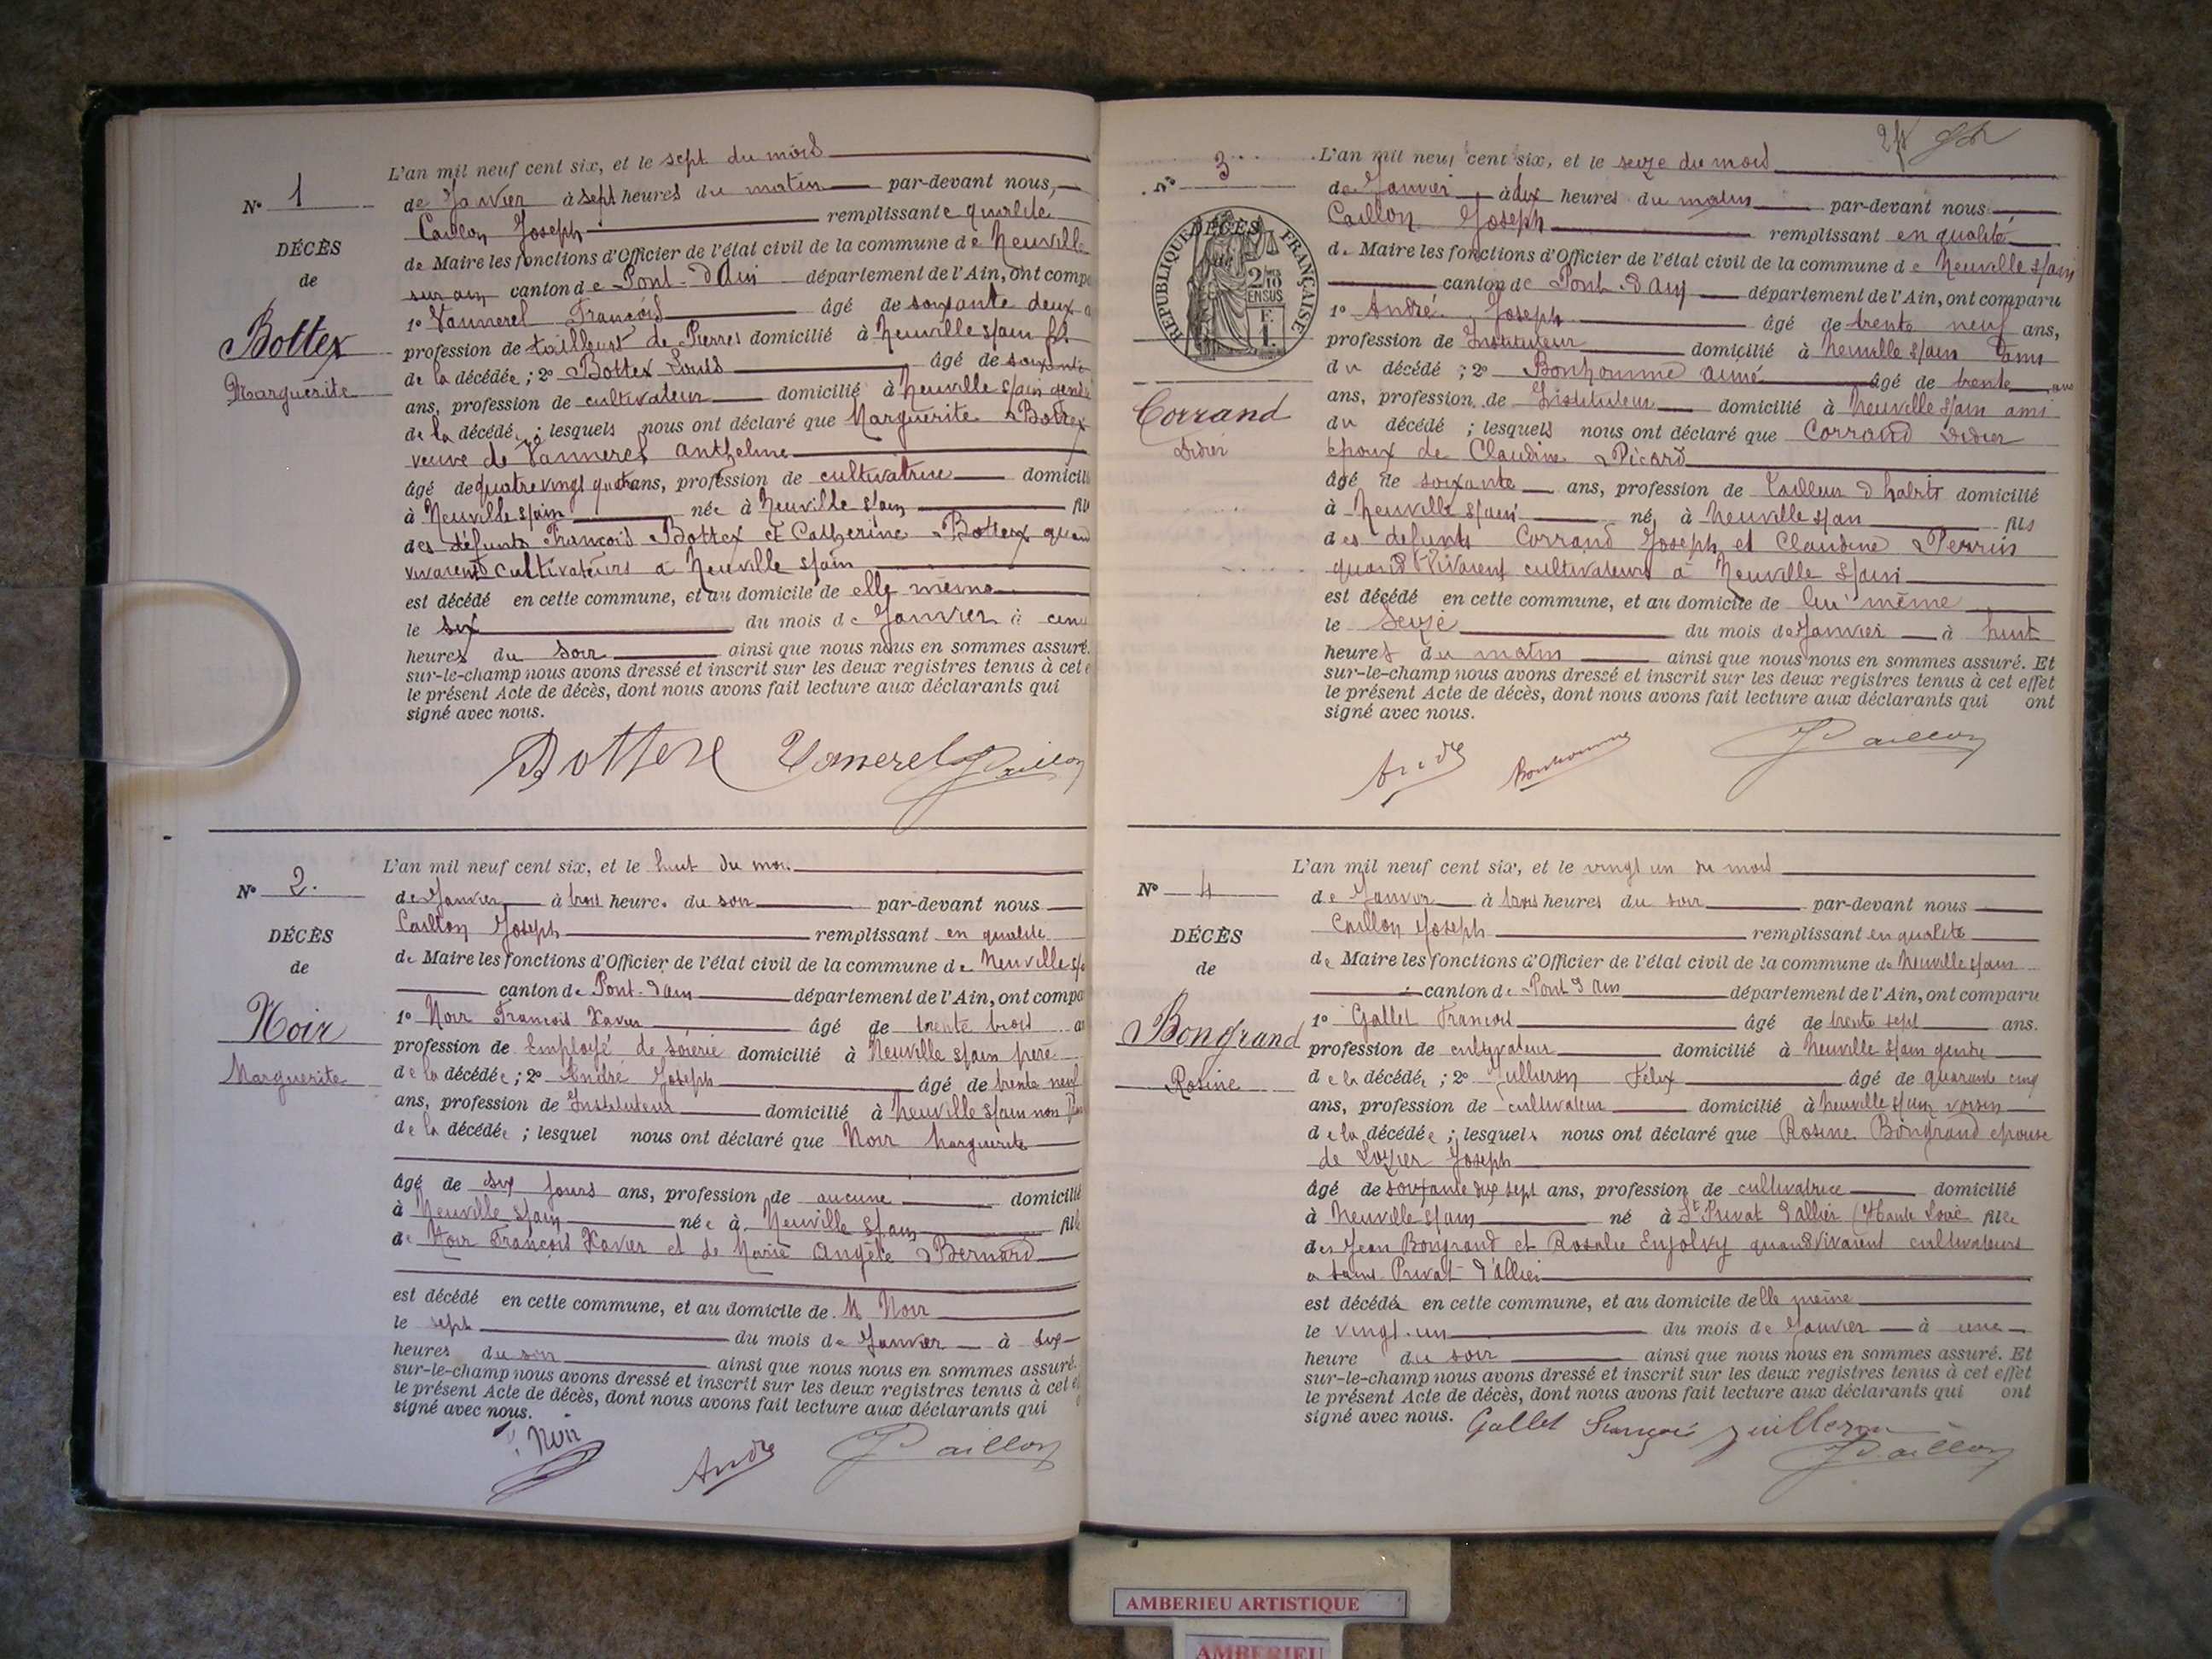 N° 1
DÉCÈS
de
Bottex
Marguerite
L'an mil neuf cent six, et le sept du mois
de Janvier à sept heures du matin par-devant nous,
Caillon Joseph remplissant e qualité
de Maire les fonctions d'Officier de l'état civil de la commune de Neuville
sur ain canton de Pont-d'Ain département de l'Ain, ont compa
1° Vannerel François âgé de soixante deux a
profession de tailleur de Pierres domicilié à Neuville s/ain fils
de la décédée ; 2° Bottex Louis âgé de soixante
ans, profession de cultivateur domicilié à Neuville s/ain gendr
de la décédée ; lesquels nous ont déclaré que Marguerite Bottex
veuve de Vannerel Anthelme
âgé de quatre vingt quatre ans, profession de cultivatrice domicili
à Neuville s/ain née à Neuville s/ain fill
des défunts François Bottex et Catherine Bottex quand
vivaient cultivateurs à Neuville s/ain
est décédé en cette commune, et au domicile de elle même
le six du mois de Janvier à cinq
heures du soir ainsi que nous nous en sommes assuré.
sur-le-champ nous avons dressé et inscrit sur les deux registres tenus à cet e
le présent Acte de décès, dont nous avons fait lecture aux déclarants qui
signé avec nous.
Bottex Vannerel J Caillon
N° 2.
DÉCÈS
de
Noir
Marguerite
L'an mil neuf cent six, et le huit du mois
de Janvier à trois heures du soir par-devant nous
Caillon Joseph remplissant en qualité
de Maire les fonctions d'Officier de l'état civil de la commune de Neuville s/a
canton de Pont-d'ain département de l'Ain, ont compa
1° Noir François Xavier âgé de trente trois a
profession de Employé de soierie domicilié à Neuville s/ain père
de la décédée ; 2° André Joseph âgé de trente neuf
ans, profession de Instituteur domicilié à Neuville s/ain non
de la décédée ; lesquel nous ont déclaré que Noir Marguerite
âgé de six jours ans, profession de aucune domicilié
à Neuville s/ain née à Neuville s/ain fille
de Noir François Xavier et de Marie Angèle Bernard
est décédé en cette commune, et au domicile de M Noir
le sept du mois de Janvier à six
heures du soir ainsi que nous nous en sommes assuré.
sur-le-champ nous avons dressé et inscrit sur les deux registres tenus à cet e
le présent Acte de décès, dont nous avons fait lecture aux déclarants qui
signé avec nous.
Noir André J Caillon
24
N° 3
DÉCÈS
RÉPUBLIQUE FRANÇAISE
2/10 EN SUS
F. 1.
Corrand
Didier
L'an mil neuf cent six, et le seize du mois
de Janvier à dix heures du matin par-devant nous
Caillon Joseph remplissant en qualité
de Maire les fonctions d'Officier de l'état civil de la commune de Neuville s/ain
canton de Pont d'Ain département de l'Ain, ont comparu
1° André Joseph âgé de trente neuf ans,
profession de Instituteur domicilié à Neuville s/ain ami
du décédé ; 2° Bonhomme Aimé âgé de trente ans
ans, profession de Instituteur domicilié à Neuville s/ain ami
du décédé ; lesquels nous ont déclaré que Corrand Didier
époux de Claudine Picard
âgé de soixante ans, profession de tailleur d'habits domicilié
à Neuville s/ain né à Neuville s/ain fils
des défunts Corrand Joseph et Claudine Perrin
quand vivaient cultivateurs à Neuville s/ain
est décédé en cette commune, et au domicile de lui même
le seize du mois de Janvier à huit
heures du matin ainsi que nous nous en sommes assuré. Et
sur-le-champ nous avons dressé et inscrit sur les deux registres tenus à cet effet
le présent Acte de décès, dont nous avons fait lecture aux déclarants qui ont
signé avec nous.
André Bonhomme J Caillon
N° 4
DÉCÈS
de
Bongrand
Rosine
L'an mil neuf cent six, et le vingt un du mois
de Janvier à trois heures du soir par-devant nous
Caillon Joseph remplissant en qualité
de Maire les fonctions d'Officier de l'état civil de la commune de Neuville s/ain
canton de Pont d'Ain département de l'Ain, ont comparu
1° Gallet François âgé de trente sept ans.
profession de cultivateur domicilié à Neuville s/ain gendre
de la décédée ; 2° Juilleron Félix âgé de quarante cinq
ans, profession de cultivateur domicilié à Neuville s/ain voisin
de la décédée ; lesquels nous ont déclaré que Rosine Bongrand épouse
de Lozier Joseph
âgé de soixante dix sept ans, profession de cultivatrice domicilié
à Neuville s/ain né à St Privat d'allier (Haute Loire fille
des Jean Bongrand et Rosalie Enjolvy quand vivaient cultivateurs
à Saint Privat d'Allier
est décédée en cette commune, et au domicile delle même
le vingt-un du mois de Janvier à une
heure du soir ainsi que nous nous en sommes assuré. Et
sur-le-champ nous avons dressé et inscrit sur les deux registres tenus à cet effet
le présent Acte de décès, dont nous avons fait lecture aux déclarants qui ont
signé avec nous. Gallet François Juilleron
J Caillon
AMBERIEU ARTISTIQUE
AMBERIEU